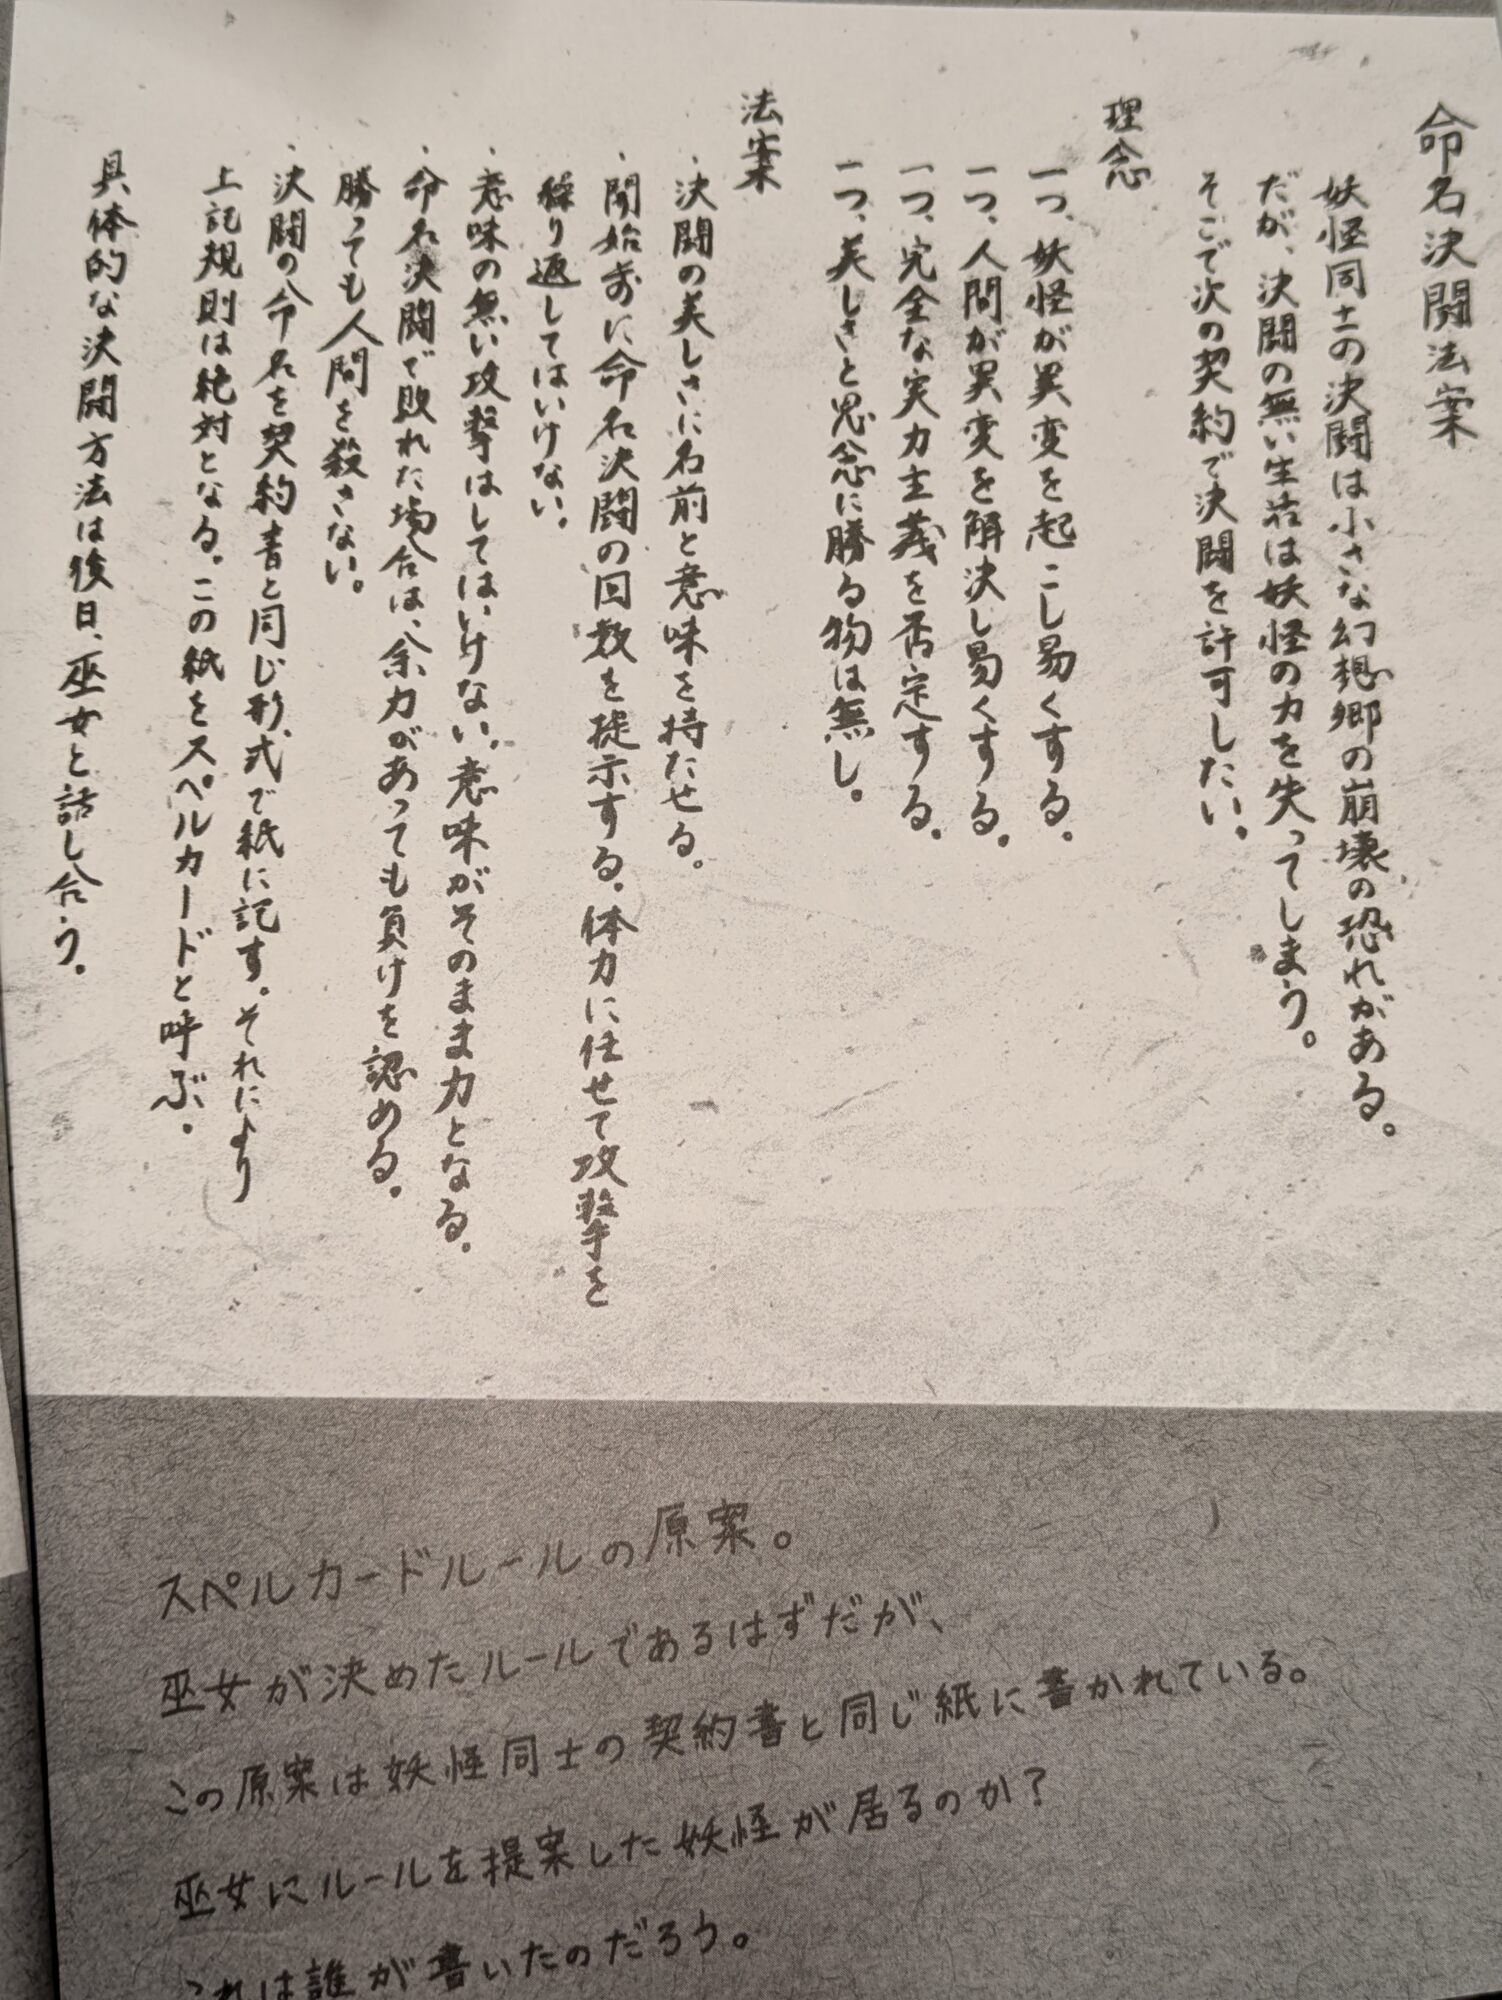 命名決闘法案
妖怪同士の決闘は小さな幻想郷の崩壊の恐れがある。
だが、決闘の無い生活は妖怪の力を失ってしまう。
そこで次の契約で決闘を許可したい。
理念
一つ、妖怪が異変を起こし易くする。
一つ、人間が異変を解決し易くする。
一つ、完全な実力主義を否定する。
一つ、美しさと思念に勝る物は無し。
法案
・決闘の美しさに名前と意味を持たせる。
・開始前に命名決闘の回数を提示する。体力に任せて攻撃を
繰り返してはいけない。
・意味の無い攻撃はしてはいけない。意味がそのまま力となる。
・命名決闘で敗れた場合は、余力があっても負けを認める。
勝っても人間を殺さない。
・決闘の命名を契約書と同じ形式で紙に記す。それにより
上記規則は絶対となる。この紙をスペルカードと呼ぶ。
具体的な決闘方法は後日、巫女と話し合う。
スペルカードルールの原案。
巫女が決めたルールであるはずだが、
この原案は妖怪同士の契約書と同じ紙に書かれている。
巫女にルールを提案した妖怪が居るのか？
これは誰が書いたのだろう。